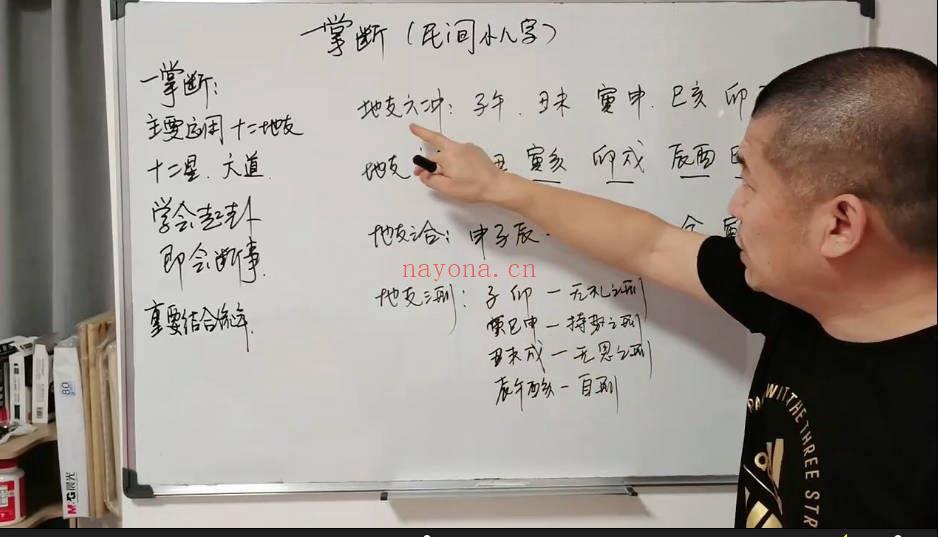 一掌断（民间小八字）
一掌断：
主要应用 十二地支
十二星．六道．
学会起卦
即会断事．
重要结合流年．
地支六冲：子午．丑未 寅申．巳亥 卯
地支 丑 寅亥 卯戌 辰酉
地支三合：申子辰．
地支三刑：子卯－无礼之刑
寅巳申－持势之刑
丑未戌－无恩之刑
辰午酉亥－自刑
nayona.cn
M&G晨光
WITHTHETHREE STR